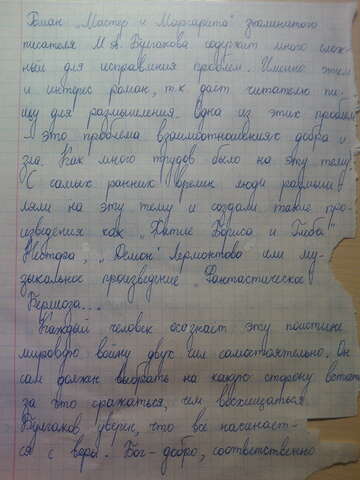 Роман „Мастер и Маргарита" знаменитого
писателя М.А. Булгакова содержит много слож-
ных для исправления проблем. Именно этим
и интерес роман, т.к. даёт читателю пи-
щу для размышления. Одна из этих проблем
– это проблема взаимоотношения добра и
зла. Как много трудов было на эту тему.
С самых ранних времен люди размыш-
ляли на эту тему и создали такие про-
изведения как „Житие Бориса и Глеба"
Нестора, „Демон" Лермонтова или му-
зыкальное произведение „Фантастическое"
Берлиоза...
Каждый человек осознаёт эту поистине
мировую войну двух сил самостоятельно. Он
сам должен выбрать на какую сторону встать
за что сражаться, чем восхищаться.
Булгаков уверен, что все начинает-
ся с веры. Бог – добро, соответственно